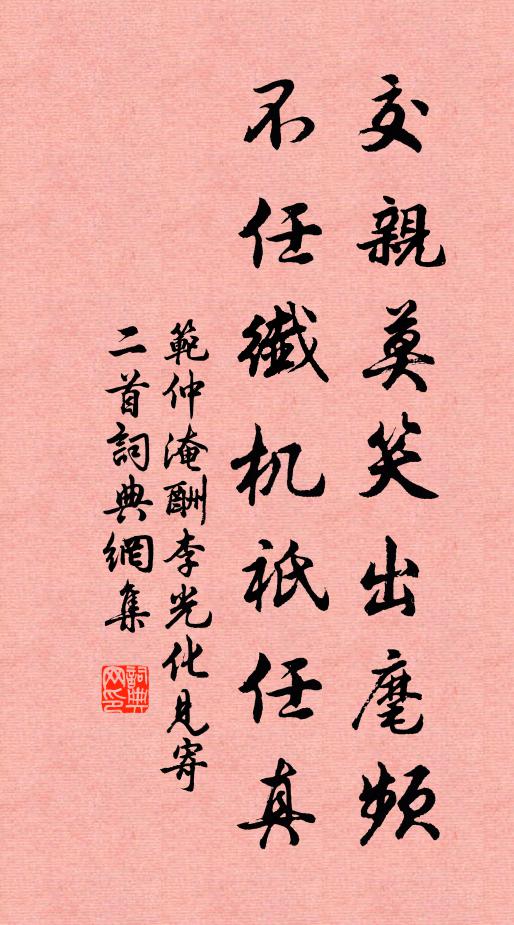 交親莫笑出麾頻
不任纖机祇任真
範仲淹酬李光化見寄
二首詞典網集
詞典网印